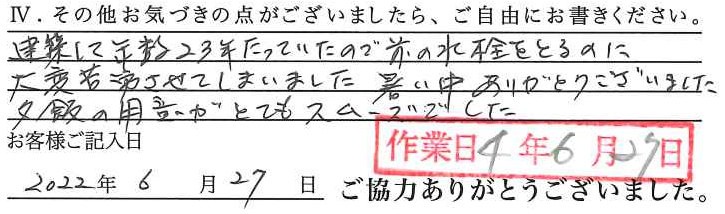 Ⅳ．その他お気づきの点がございましたら、ご自由にお書きください。
建築して年数23年たっていたので前の水栓をとるのに
大変苦労させてしまいました 暑い中ありがとうございました
夕飯の用意がとてもスムーズでした
お客様ご記入日
作業日4年6月27日
2022年 6 月27 日 ご協力ありがとうございました。